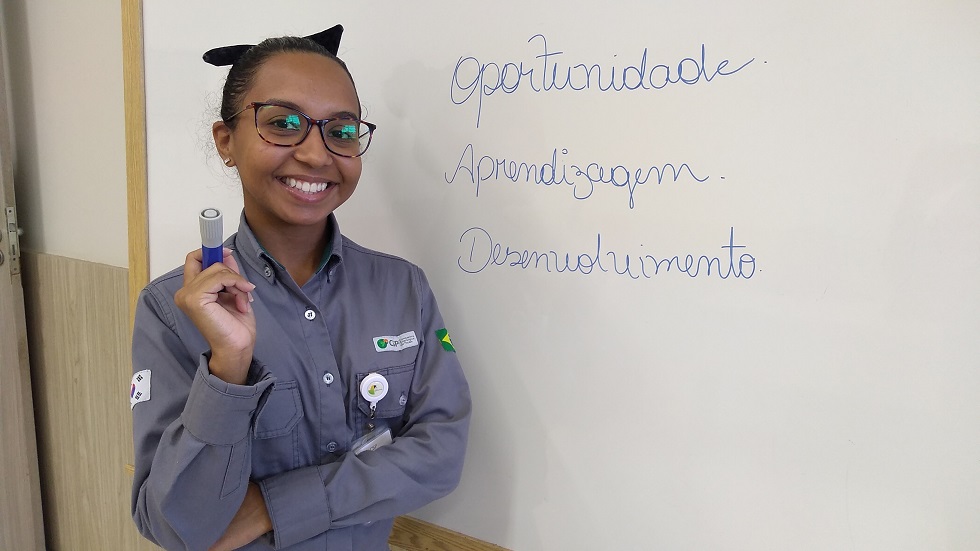 Oportunidade.
Aprendizagem.
Desenvolvimento.
CSP